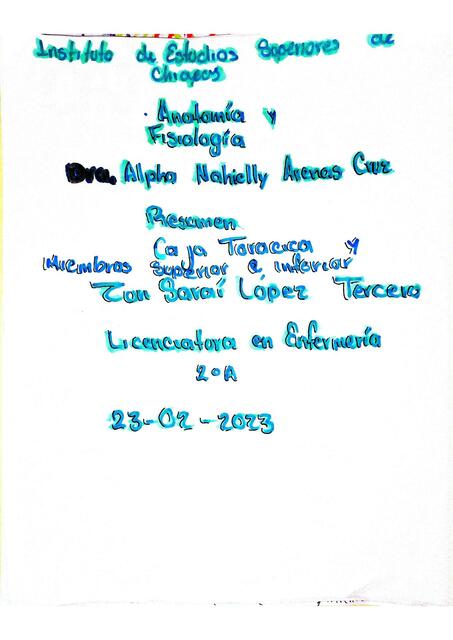 Instituto de Estudios Superiores de
Chiapas
Anatomía y
Fisiología
Dra. Alpha Nahielly Arenas Cruz
Resumen
Caja Toracica y
Miembros Superior e inferior
Zon Saraí López Tercero
Licenciatura en Enfermería
2°A
23-02-2023